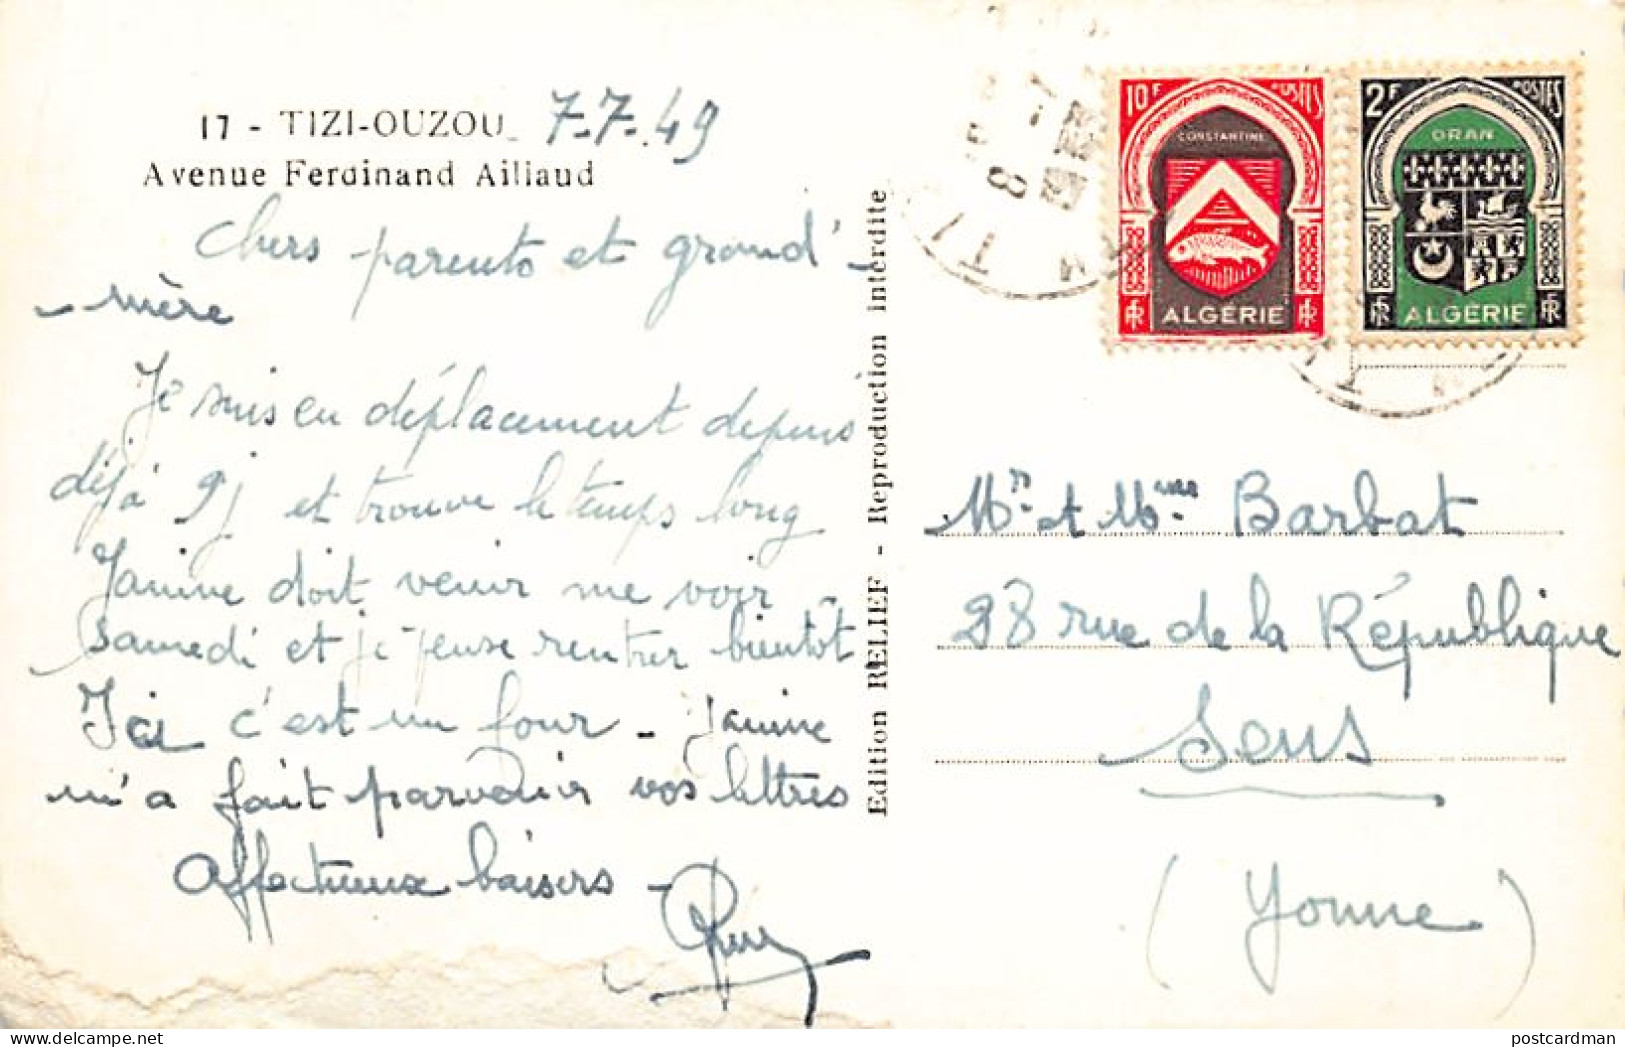 17 - TIZI-OUZOU 7-7-49
Avenue Ferdinand Aillaud
Chers parents et grand'
-mère
Je suis en déplacement depuis
déjà 9j et trouve le temps long
Janine doit venir me voir
samedi et je pense rentrer bientôt
Ici c'est un four - Janine
m'a fait parvenir vos lettres
Affectueux baisers -
Edition RELIEF - Reproduction interdite
10F POSTES
CONSTANTINE
RF ALGÉRIE RF
2F POSTES
ORAN
RF ALGÉRIE RF
Mr et Mme Barbat
28 rue de la République
Sens
(Yonne)
postcardman